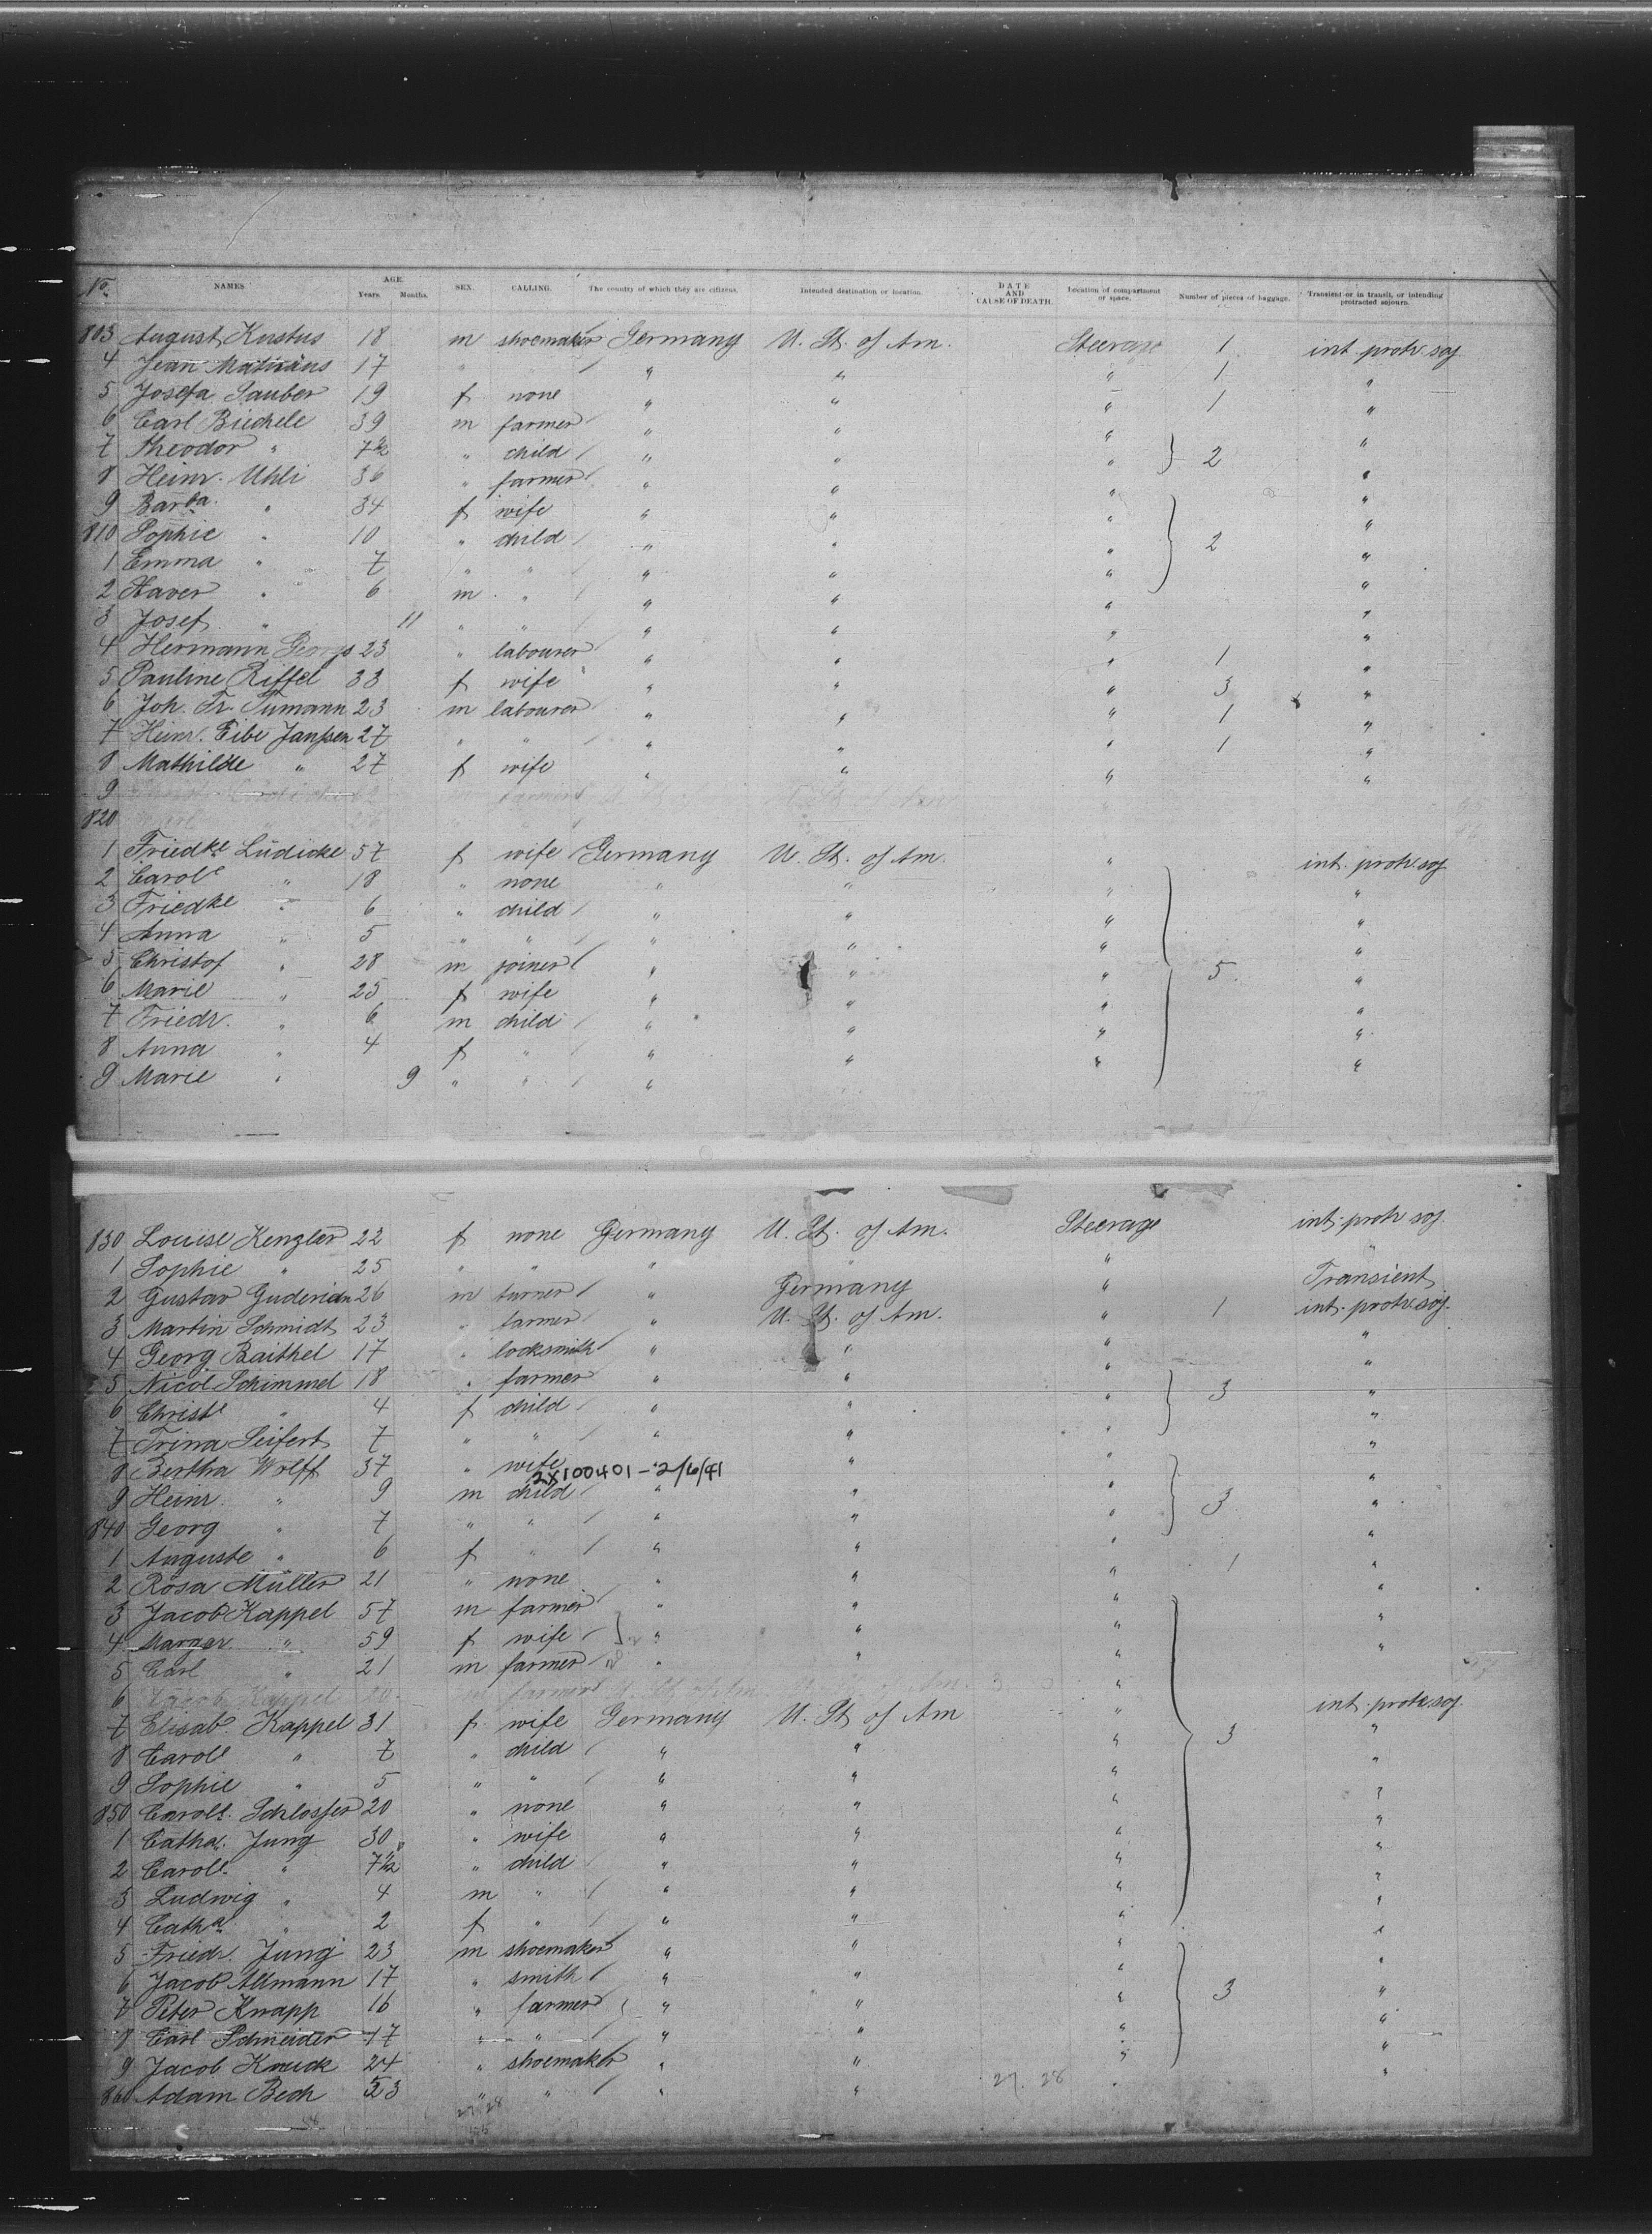 No. NAMES. AGE. Years. Months. SEX. CALLING. The country of which they are citizens. Intended destination or location. DATE AND CAUSE OF DEATH. Location of compartment or space. Number of pieces of baggage. Transient or in transit, or intending protracted sojourn.
803 August Kustus 18 m shoemaker Germany U. St. of Am. Steerage 1 int. protr. soj.
4 Jean 17 " " " " " 1 "
5 Josefa Sauber 19 f none " " " 1 "
6 Carl Biechele 39 m farmer " " " "
7 Theodor " 7 " child " " " 2 "
8 Heinr. Uhli 36 " farmer " " " "
9 Barba. " 34 f wife " " " "
810 Sophie " 10 " child " " " 2 "
1 Emma " 7 " " " " " "
2 Xaver " 6 m " " " " "
3 Josef " 11 " " " " " "
4 Hermann 23 " labourer " " " 1 "
5 Pauline Riffel 33 f wife " " " 3 "
6 Joh. Fr. Tumann 23 m labourer " " " 1 "
7 Heinr. Eibe Janssen 27 " " " " " 1 "
8 Mathilde " 27 f wife " " " "
9 farmer
820
1 Friedke Lüdicke 57 f wife Germany U. St. of Am. " int. protr. soj.
2 Carole " 18 " none " " " "
3 Friedke " 6 " child " " " "
4 Anna " 5 " " " " " "
5 Christof " 28 m joiner " " " 5 "
6 Marie " 25 f wife " " " "
7 Friedr. " 6 m child " " " "
8 Anna " 4 f " " " " "
9 Marie " 9 " " "
830 Louise Kenzler 22 f none Germany U. St. of Am. Steerage int. protr. soj.
1 Sophie " 25 " " " " " "
2 Gustav Guderian 26 m turner " Germany " Transient
3 Martin Schmidt 23 " farmer " U. St. of Am. " 1 int. protr. soj.
4 Georg Baithel 17 " locksmith " " " "
5 Nicol Schimmel 18 " farmer " " " "
6 Christe " 4 f child " " " 3 "
7 Trina Seifert 7 " " " " " "
8 Bertha Wolff 37 " wife " " "
2X100401 - 2/6/41
9 Heinr. " 9 m child " " " 3 "
840 Georg " 7 " " " " " "
1 Auguste " 6 f " " " " "
2 Rosa Müller 21 " none " " " 1 "
3 Jacob Kappel 57 m farmer " " " "
4 Margar. " 59 f wife " " " "
5 Carl " 21 m farmer " " " "
6 Jacob Kappel 20 farmer
7 Elisab. Kappel 31 f wife Germany U. St. of Am " int. protr. soj.
8 Carole " 7 " child " " " 3 "
9 Sophie " 5 " " " " " "
850 Carole. Schlosser 20 " none " " " "
1 Catha. Jung 30 " wife " " " "
2 Carole. " 7 " child " " " "
3 Ludwig " 4 m " " " " "
4 Catha " 2 f " " " " "
5 Friedr. Jung 23 m shoemaker " " " "
6 Jacob Allmann 17 " smith " " " "
7 Peter Knapp 16 " farmer " " " 3 "
8 Carl Schneider 17 " " " " " "
9 Jacob Kneick 24 " shoemaker " " " "
860 Adam Bech 23 " " " " " "
27. 28
27. 28